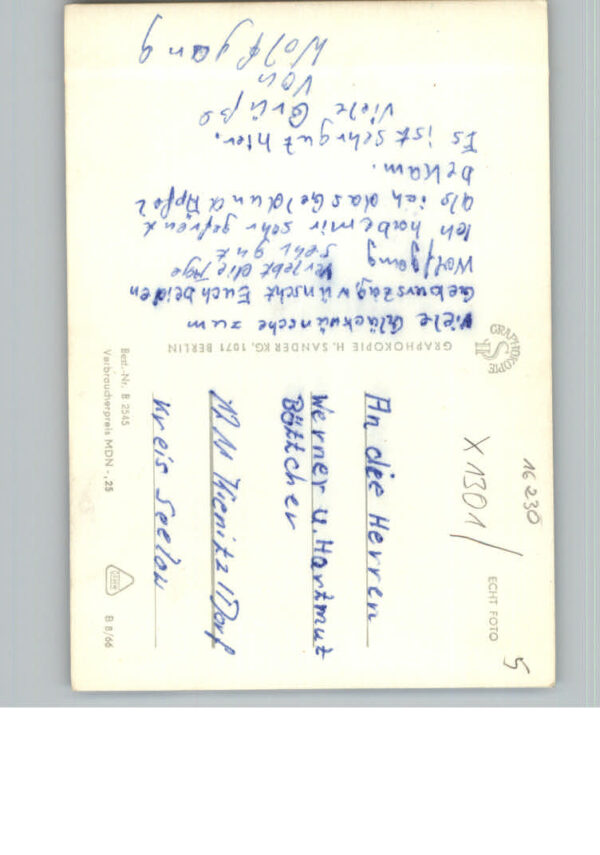 Viele Glückwünsche zum
Geburszag, wünscht Euch beiden
Verlebt die Tage
Wolfgang sehr gut
Ich habe mir sehr gefreut
als ich das Geld und Äpfel
bekam.
Es ist sehr gut hier.
Viele Grüße
von
Wolfgang
GRAPHOKOPIE H. SANDER KG, 1071 BERLIN
GRAPHOKOPIE
HS
An die Herren
Werner u. Hartmut
Böttcher
Kienitz/Dorf
Kreis Seelow
16230
X 1301/
ECHT FOTO
5
Best.-Nr. B 2545
Verbraucherpreis MDN -,25
B 8/66